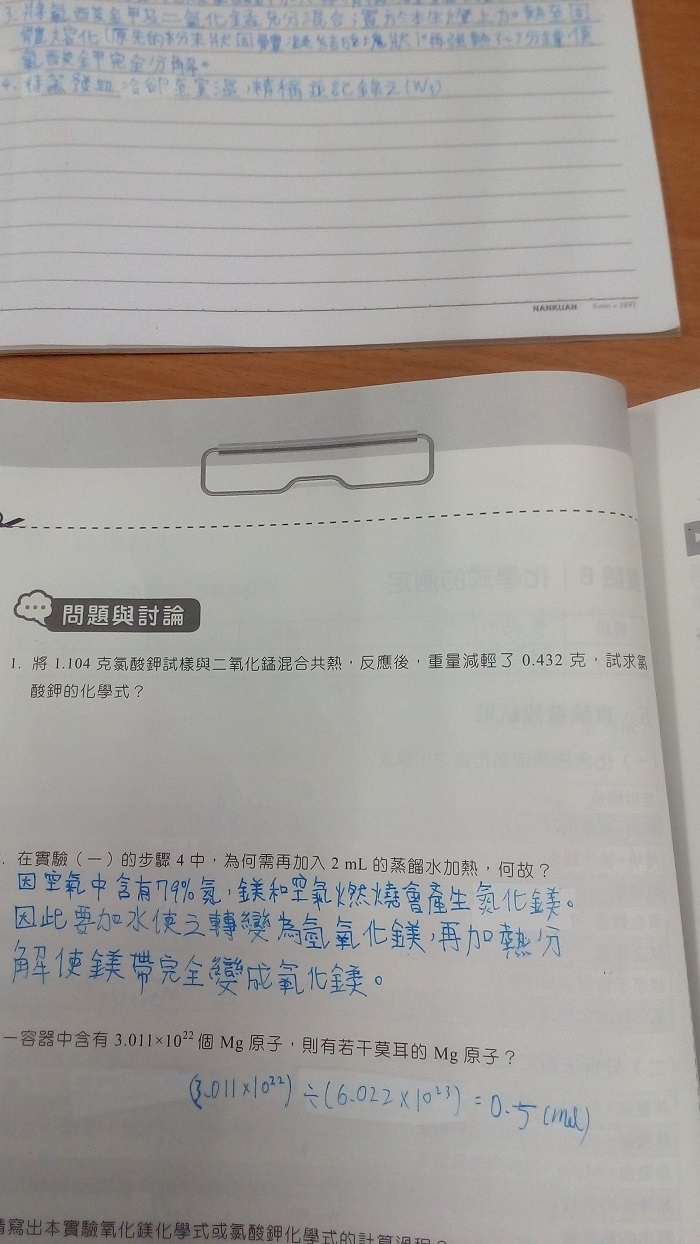 3.將氯酸鉀及二氧化錳充分混合,置於本生燈上加熱至固
體熔化(原先的粉末狀固體凝結成塊狀),再強熱1~2分鐘,使
氯酸鉀完全分解。
4.待蒸發皿冷卻至室溫,精稱並記錄之(W₂)
NANKUAN
問題與討論
1. 將 1.104 克氯酸鉀試樣與二氧化錳混合共熱,反應後,重量減輕了 0.432 克,試求氯
酸鉀的化學式?
. 在實驗(一)的步驟 4 中,為何需再加入 2 mL 的蒸餾水加熱,何故?
因空氣中含有79%氮,鎂和空氣燃燒會產生氮化鎂。
因此要加水使之轉變為氫氧化鎂,再加熱分
解使鎂帶完全變成氧化鎂。
一容器中含有 3.011×10²² 個 Mg 原子,則有若干莫耳的 Mg 原子?
(3.011×10²²)÷(6.022×10²³)=0.5(mol)
請寫出本實驗氧化鎂化學式或氯酸鉀化學式的計算過程?